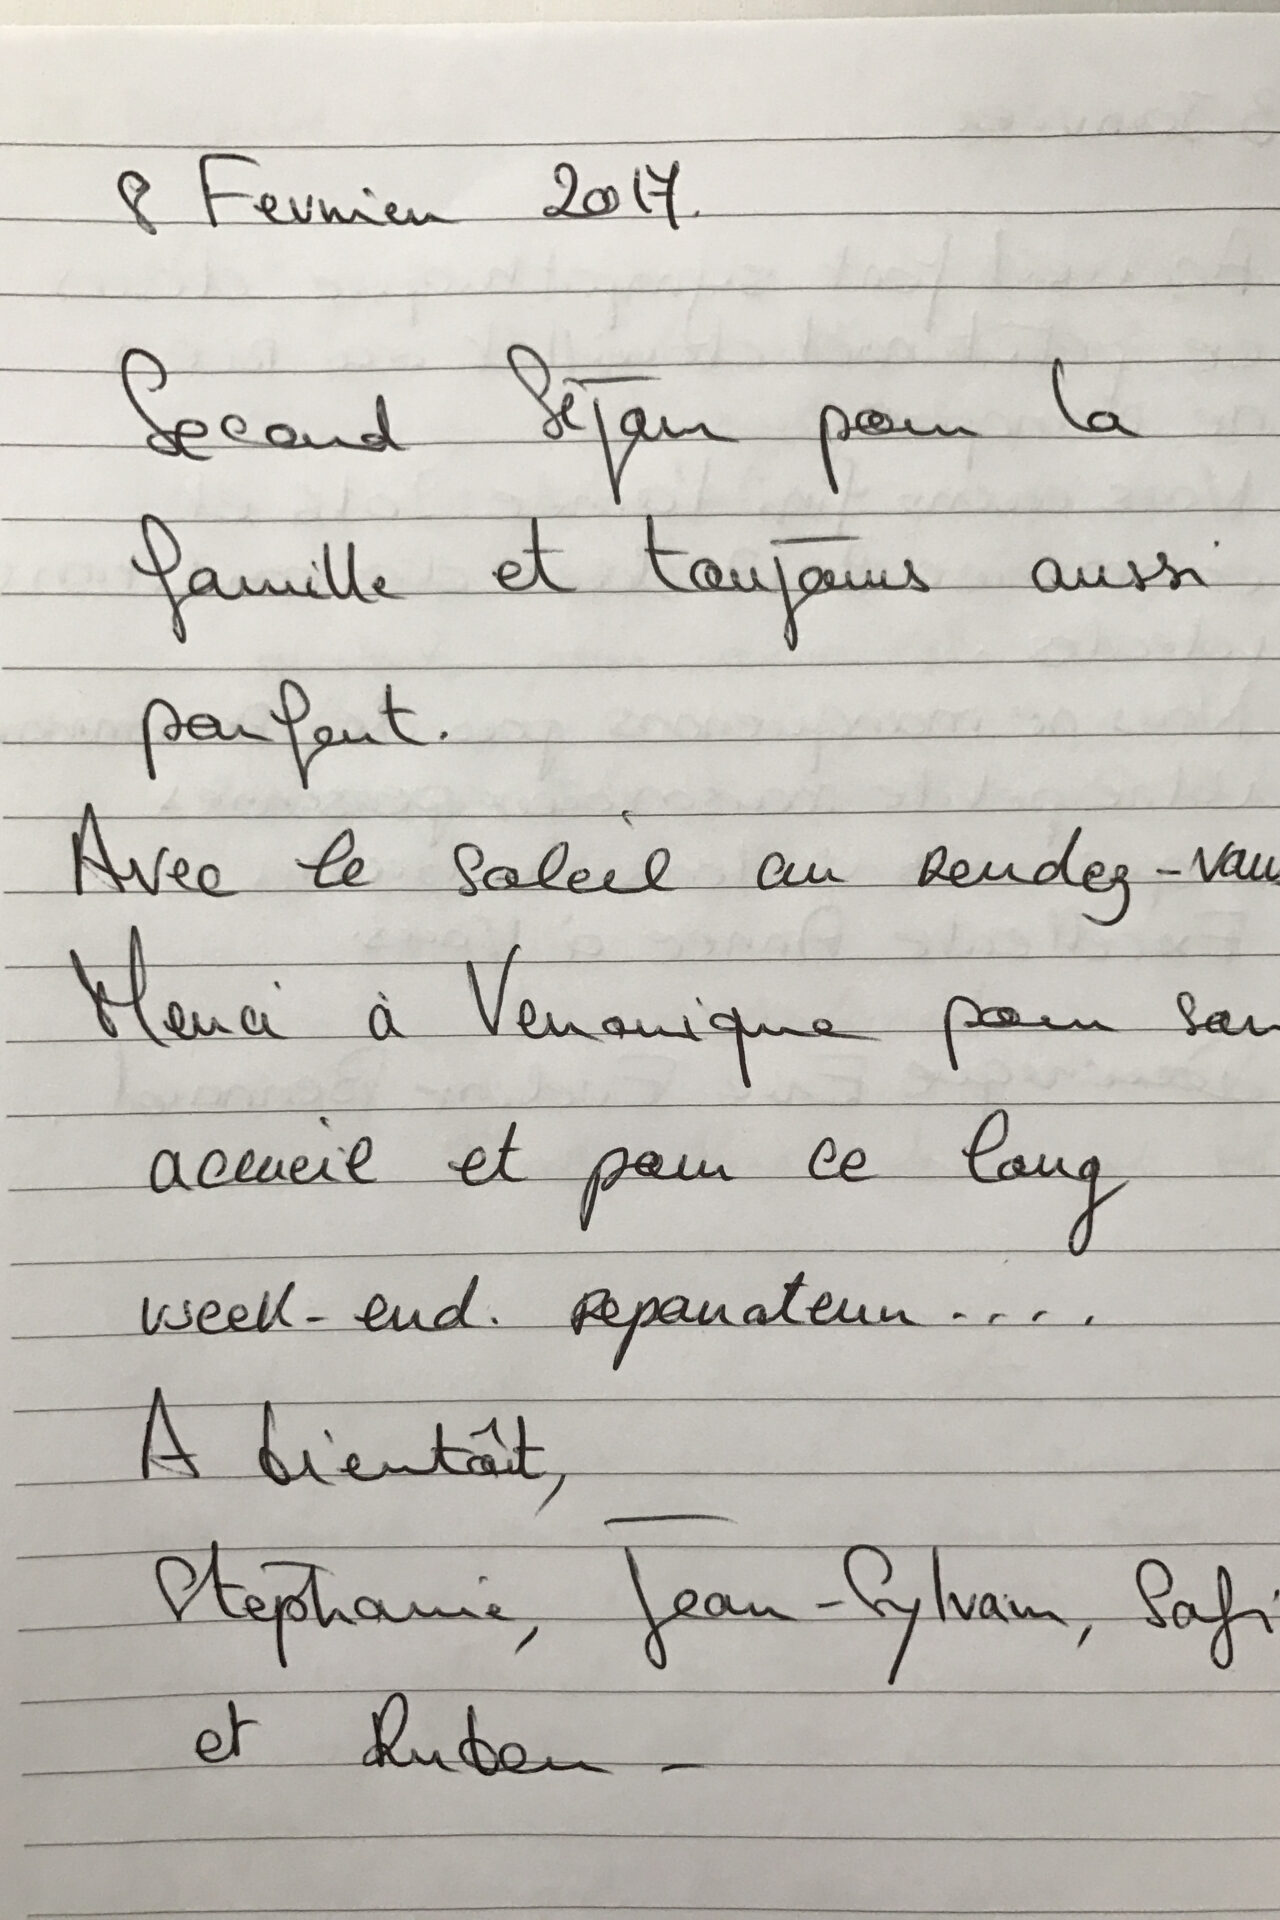 8 Fevrier 2017.
Second Séjour pour la
famille et toujours aussi
parfait.
Avec le soleil au rendez-vous
Merci à Veronique pour son
accueil et pour ce long
week-end. reparateur....
A bientôt,
Stephanie, Jean-Sylvain, Safi
et Ruben -